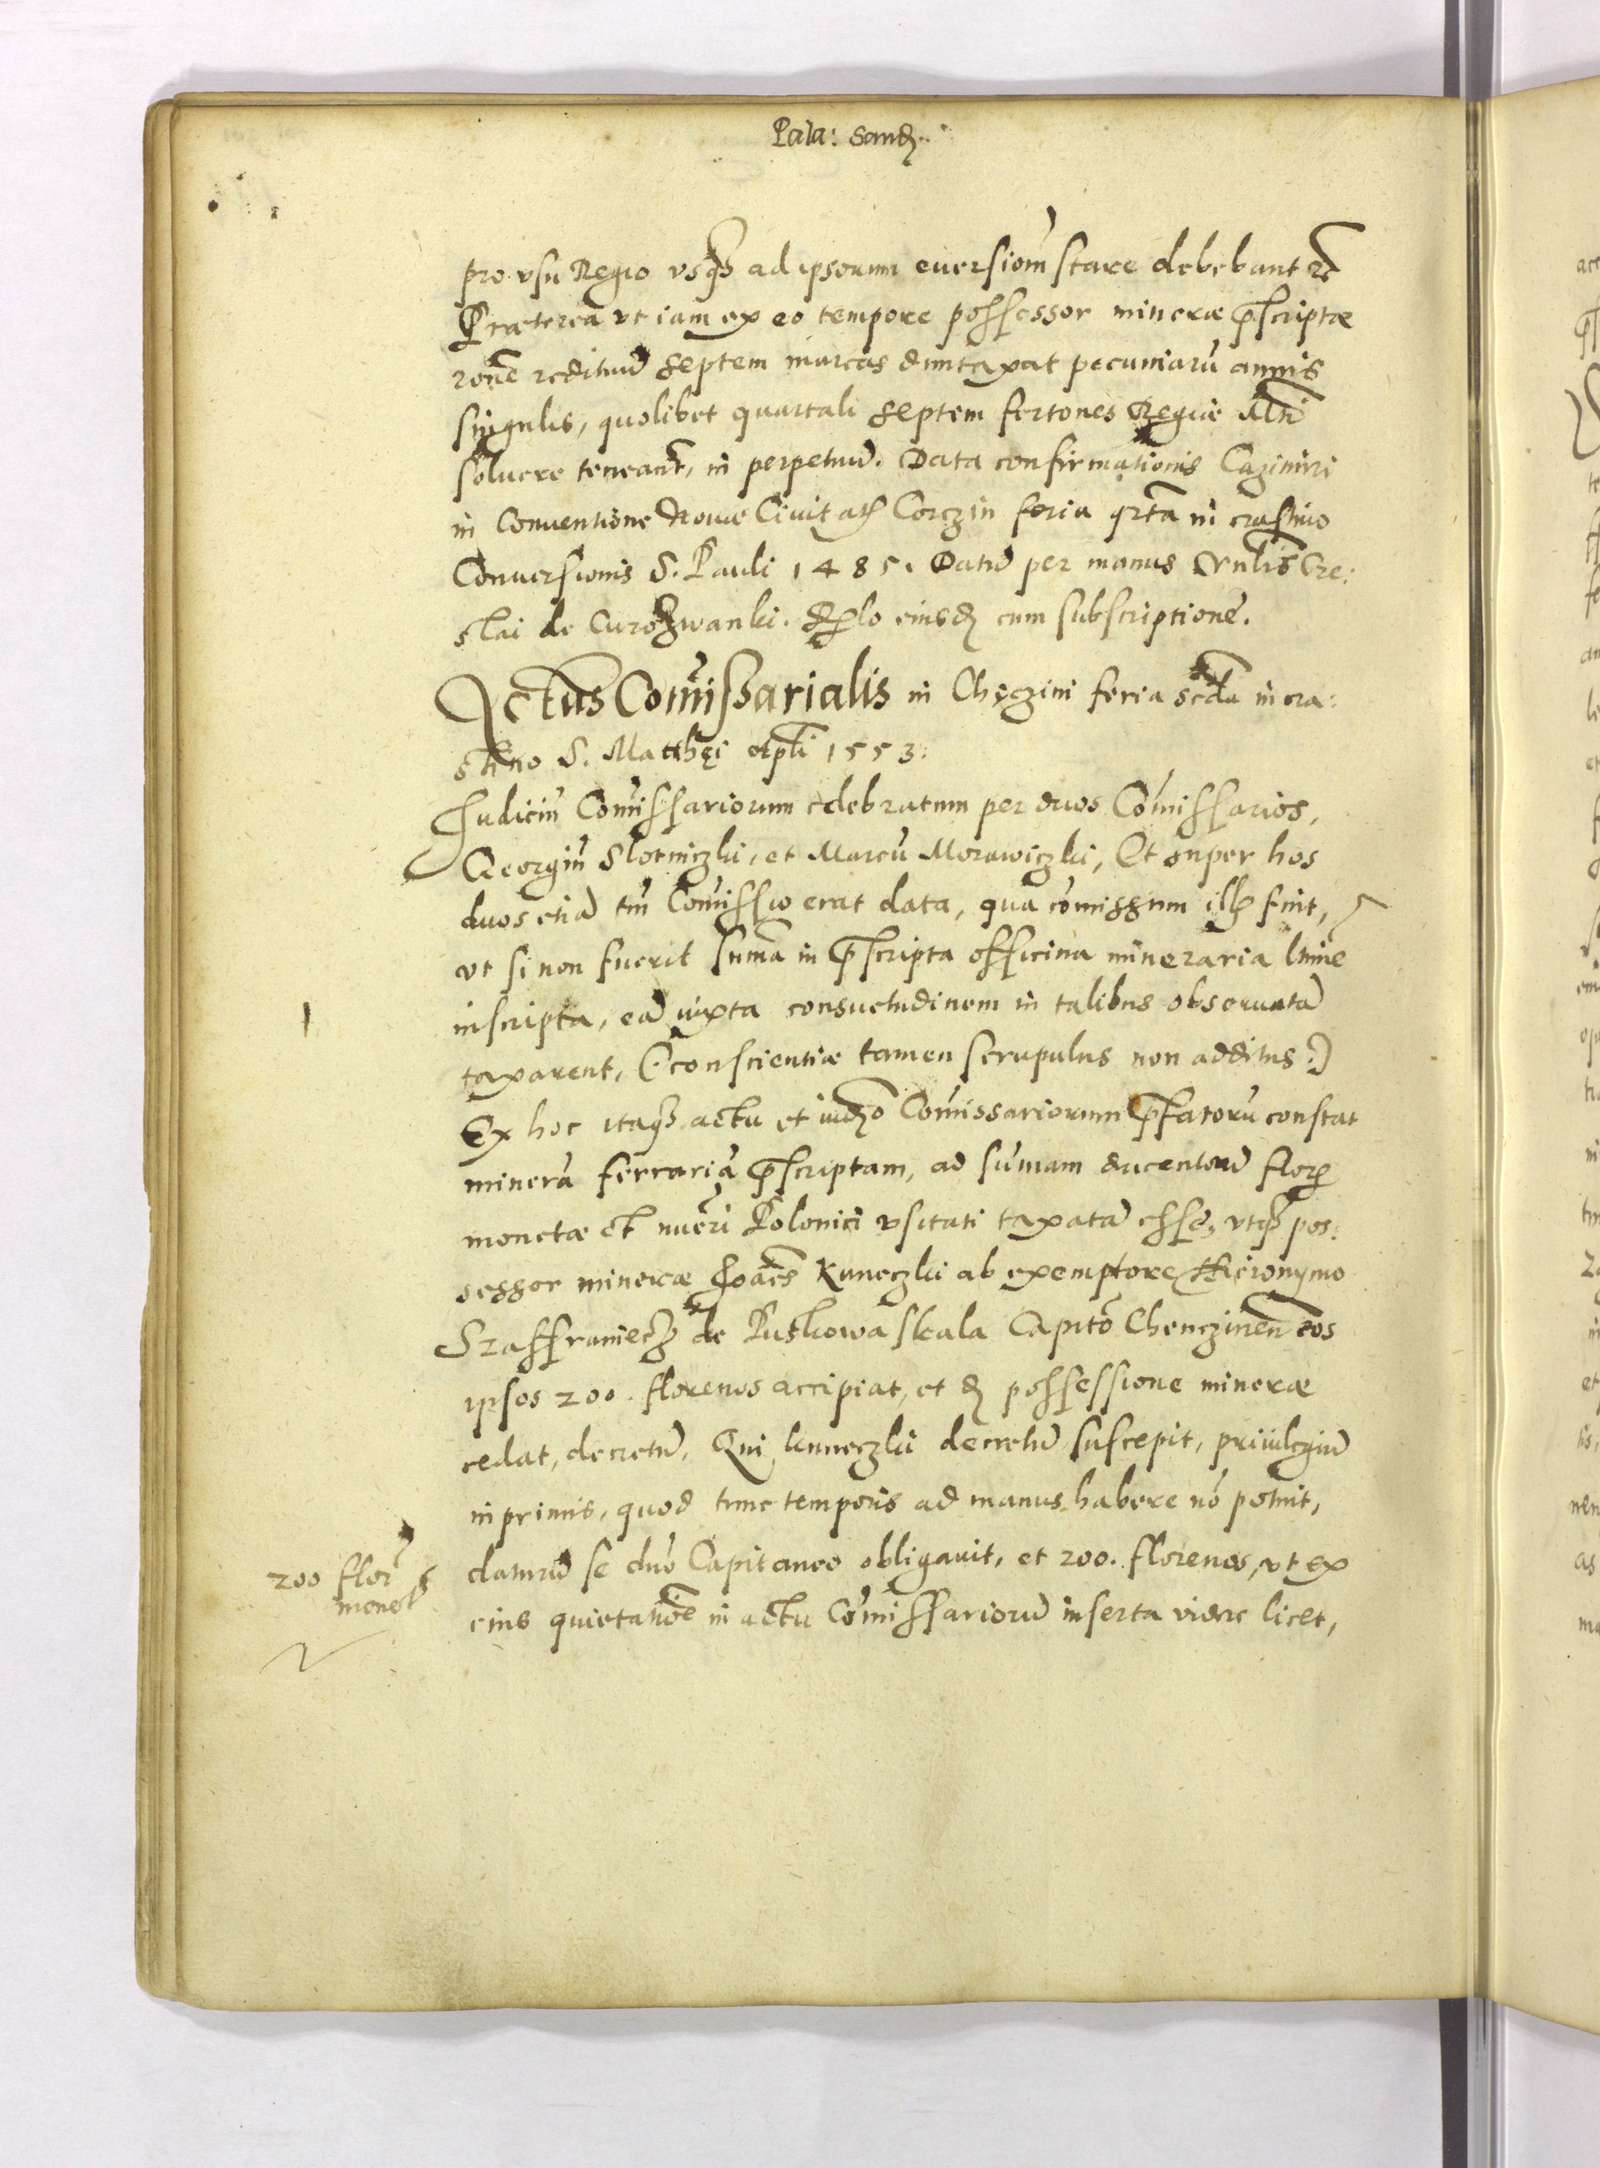 Pala: Sand.
pro vsu Regio vsq3 ad ipsorum euersiom̃ stare debebant rc̃
Præterea vt iam ex eo tempore possessor mineræ p̃scriptæ
rõne redituũ septem marcas duntaxat pecuniarũ annis
singulis, quolibet quartali septem fertones Regiæ Mti
soluere teneant̃, in perpetuũ. Data confirmationis Cazimiri
in Conuentione Nouæ Ciuitatis Corczin feria qrta in crastino
Conuersionis S. Pauli 1485. Datũ per manus Cre:
slai de Curozwanki. cum subscriptione.
Actus Com̃issarialis in Chęczini feria scda in cra:
stino S. Matthęi Apli 1553:
Judiciũ Com̃issariorum celebratum per duos Com̃issarios,
Georgiũ Slotniczki, et Marcũ Morawiczki, Et super hos
duos etiã tm̃ Com̃issio erat data, qua com̃issum ill fuit,
vt si non fuerit sum̃a in p̃scripta officina mineraria
inscripta, eã iuxta consuetudinem in talibus obseruatã
taxarent, (: conscientiæ tamen scrupulus non additus :)
Ex hoc itaq3 actu et iudo Com̃issariorum p̃fatorũ constat
minerã ferrariã p̃scriptam, ad sum̃am ducentorũ flor
monetæ et nũeri Polonici vsitati taxatã esse, vtq3 pos:
sessor mineræ Joañes Kuneczki ab exemptore Hieronymo
Szaffraniecz de Pieskowa skala Capitõ Chenczineñ eos
ipsos 200. florenos accipiat, et d possessione mineræ
cedat, decretũ. Qui Kuneczki decretũ suscepit, priuilegiũ
inprimis, quod tunc temporis ad manus habere nõ potuit,
daturũ se dno Capitaneo obligauit, et 200. florenos, vt ex
eius quietatiõe in actu Com̃issariorũ inserta videre licet,
200 flor
monet